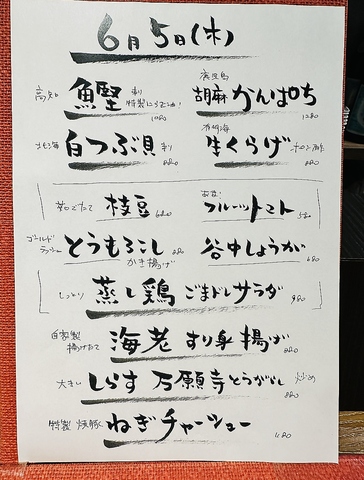 6月5日(木)
高知 鰹 刺 特製にんにく! 1080
鹿児島 胡麻かんぱち 1280
北海 白つぶ貝 刺 880
有明海 生くらげ ポン酢 880
茹でたて 枝豆 680
フルーツトマト 580
ゴールドラッシュ とうもろこし かき揚げ 680
谷中しょうが 680
しっとり 蒸し鶏 ごまドレサラダ 980
自家製 揚げたて 海老すり身揚げ 880
大きい しらす 万願寺とうがらし 炒め 880
特製 焼豚 ねぎチャーシュー 1180